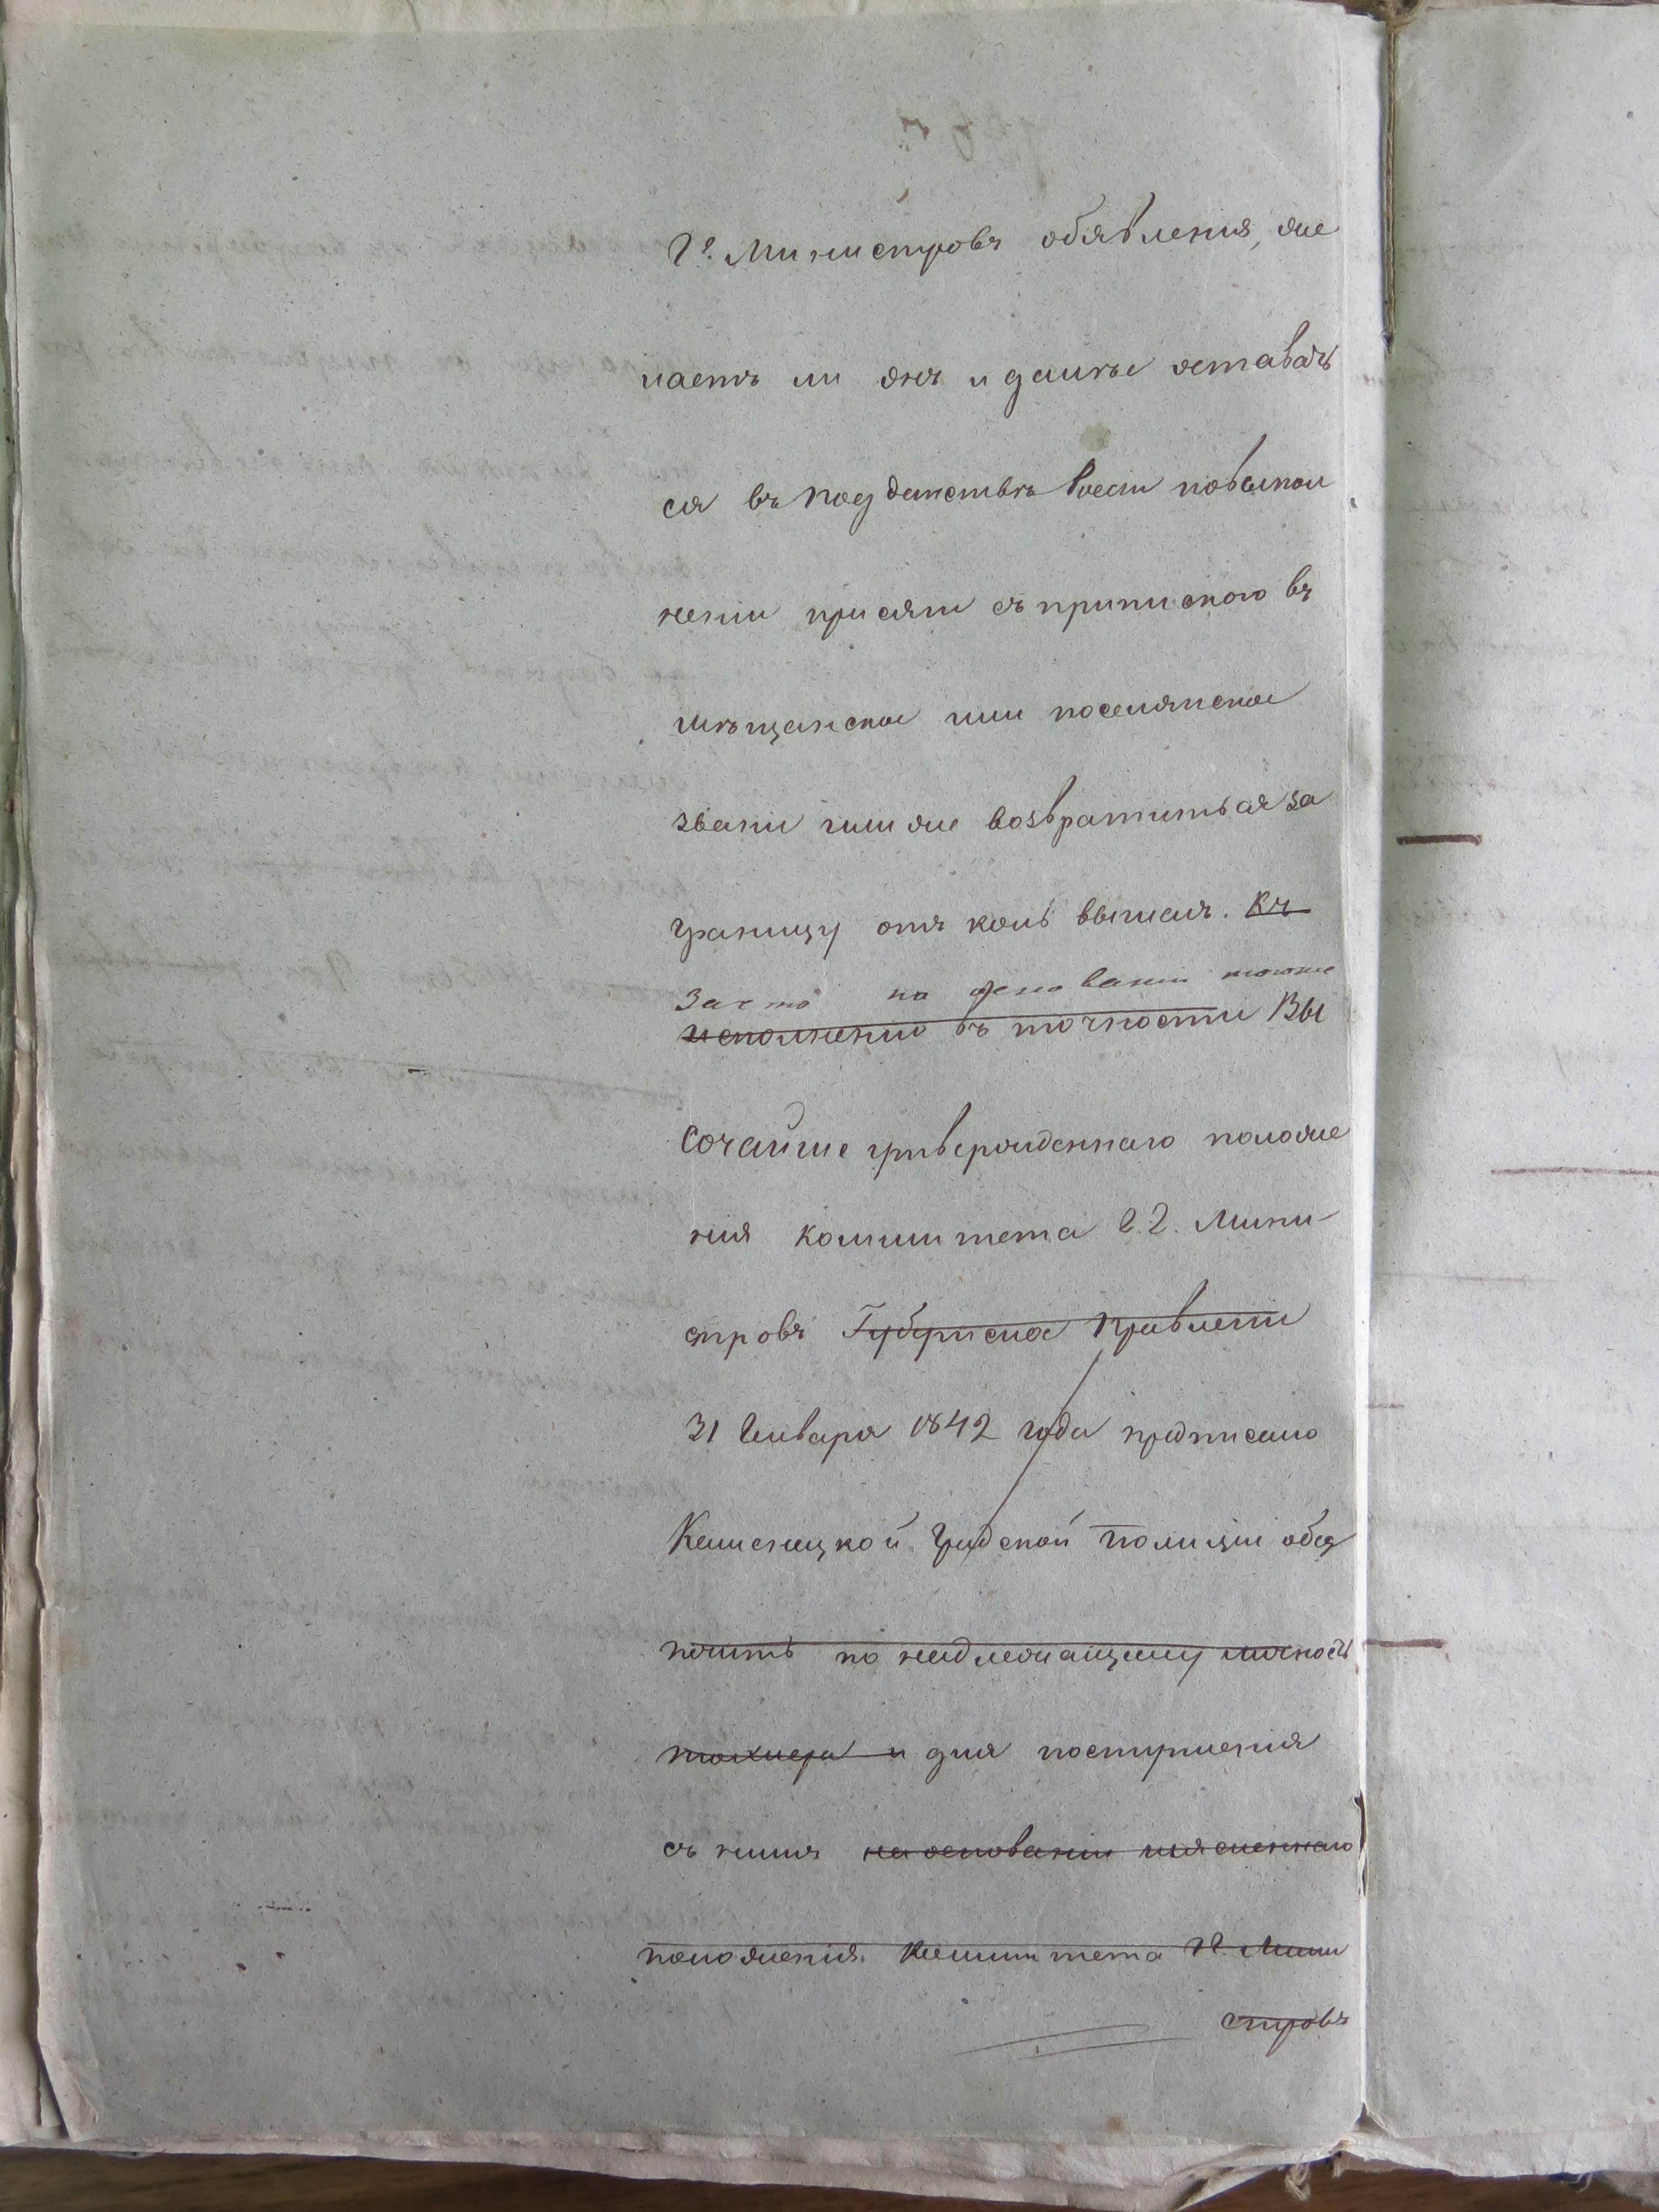 Гг. Министровъ обявления, же
лаетъ ли онъ и далѣе оставать
ся въ подданствѣ Росси повыпол
нении присяги съ припискою въ
мѣщанское или поселянское
звани или же возвратиться за
границу отъ коль вышелъ. Къ
Зачто на основании того же
исполнению въ точности Вы
сочайше утвержденнаго положе
ния комитета г.г. Мини-
стровъ Губернское Правлени
31 Января 1842 года предписано
Градской Полиции обез
печить по надлежащему личность
и для поступления
съ нимъ на основании изясненнаго
положения Комитета Гг. Мини
стровъ